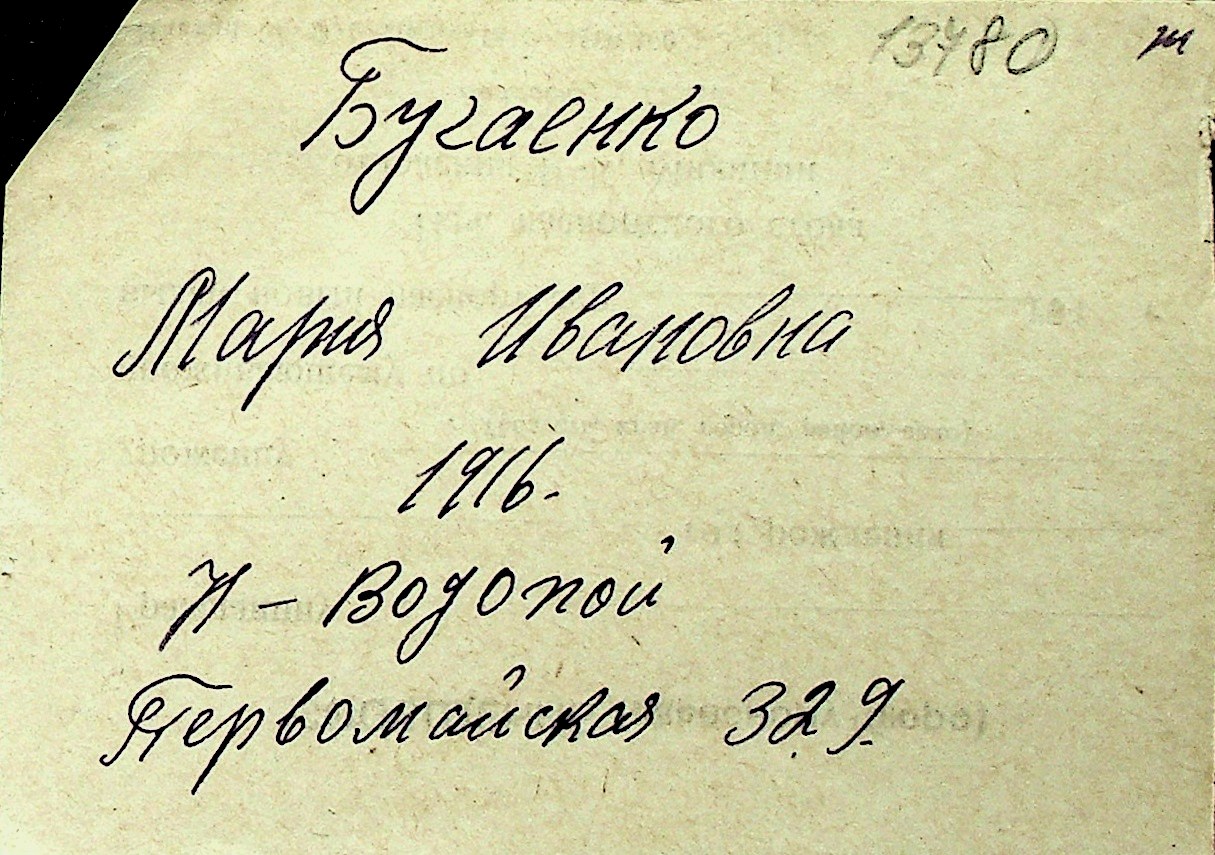 13480 ж
Бугаенко
Мария Ивановна
1916.
Н - Водопой
Первомайская 329